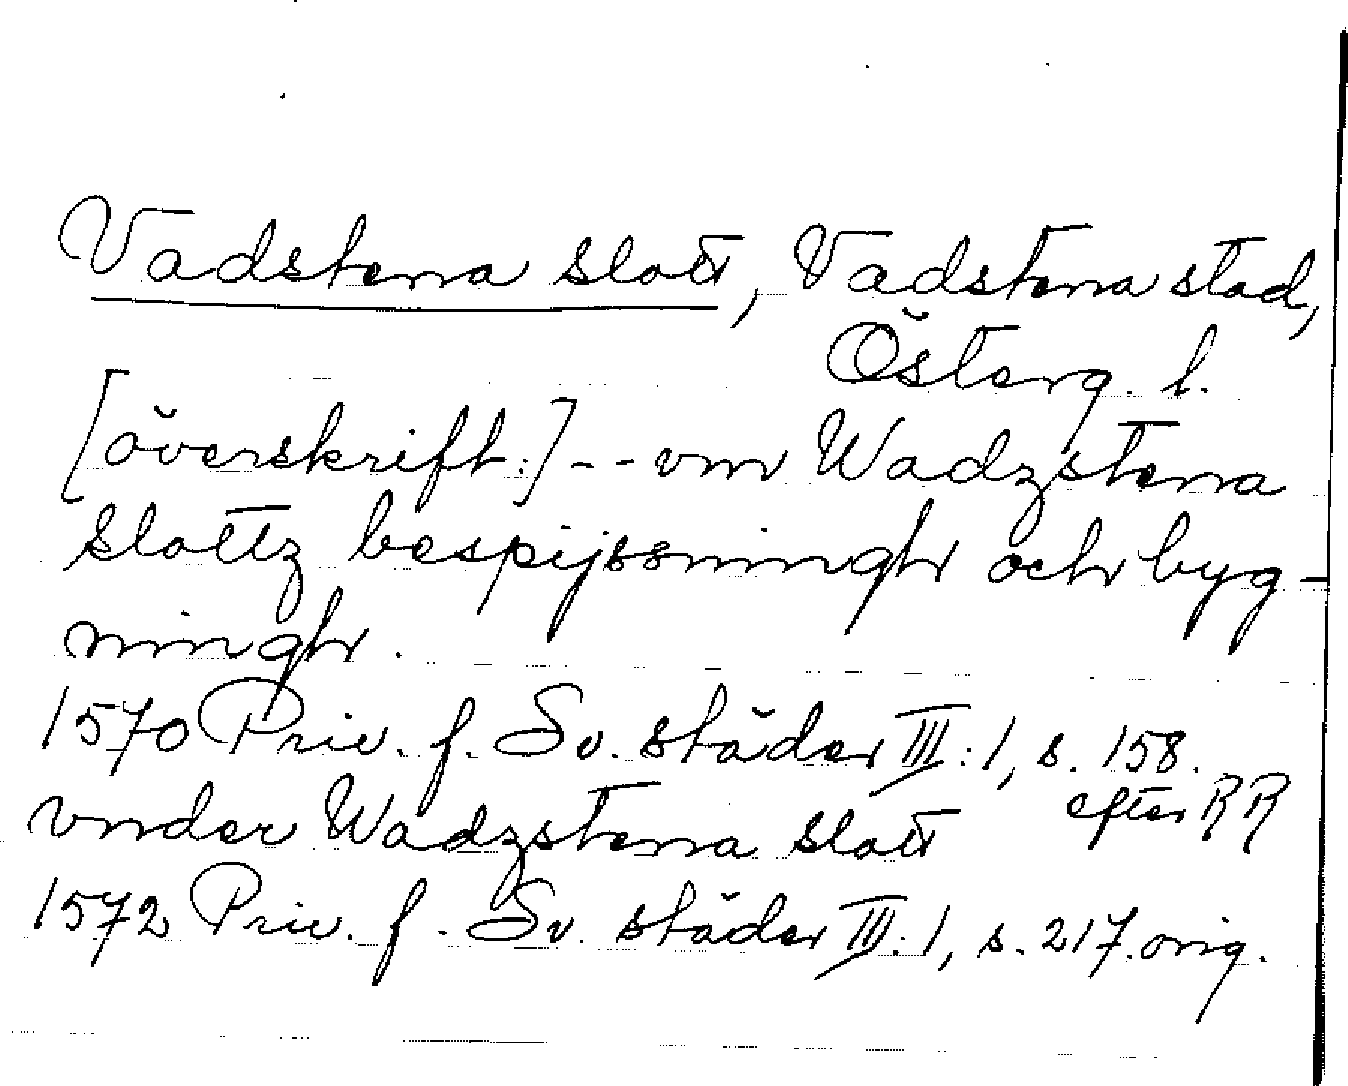 Vadstena slott, Vadstena stad,
Österg. l.
[överskrift:] - - vm Wadzstena
Slottz bespijssningh och byg-
ningh.
1570 Priv. f. Sv. städer III:1, s. 158.
efter RR
vnder Wadzstena slott
1572 Priv. f. Sv. städer III:1, s. 217. orig.